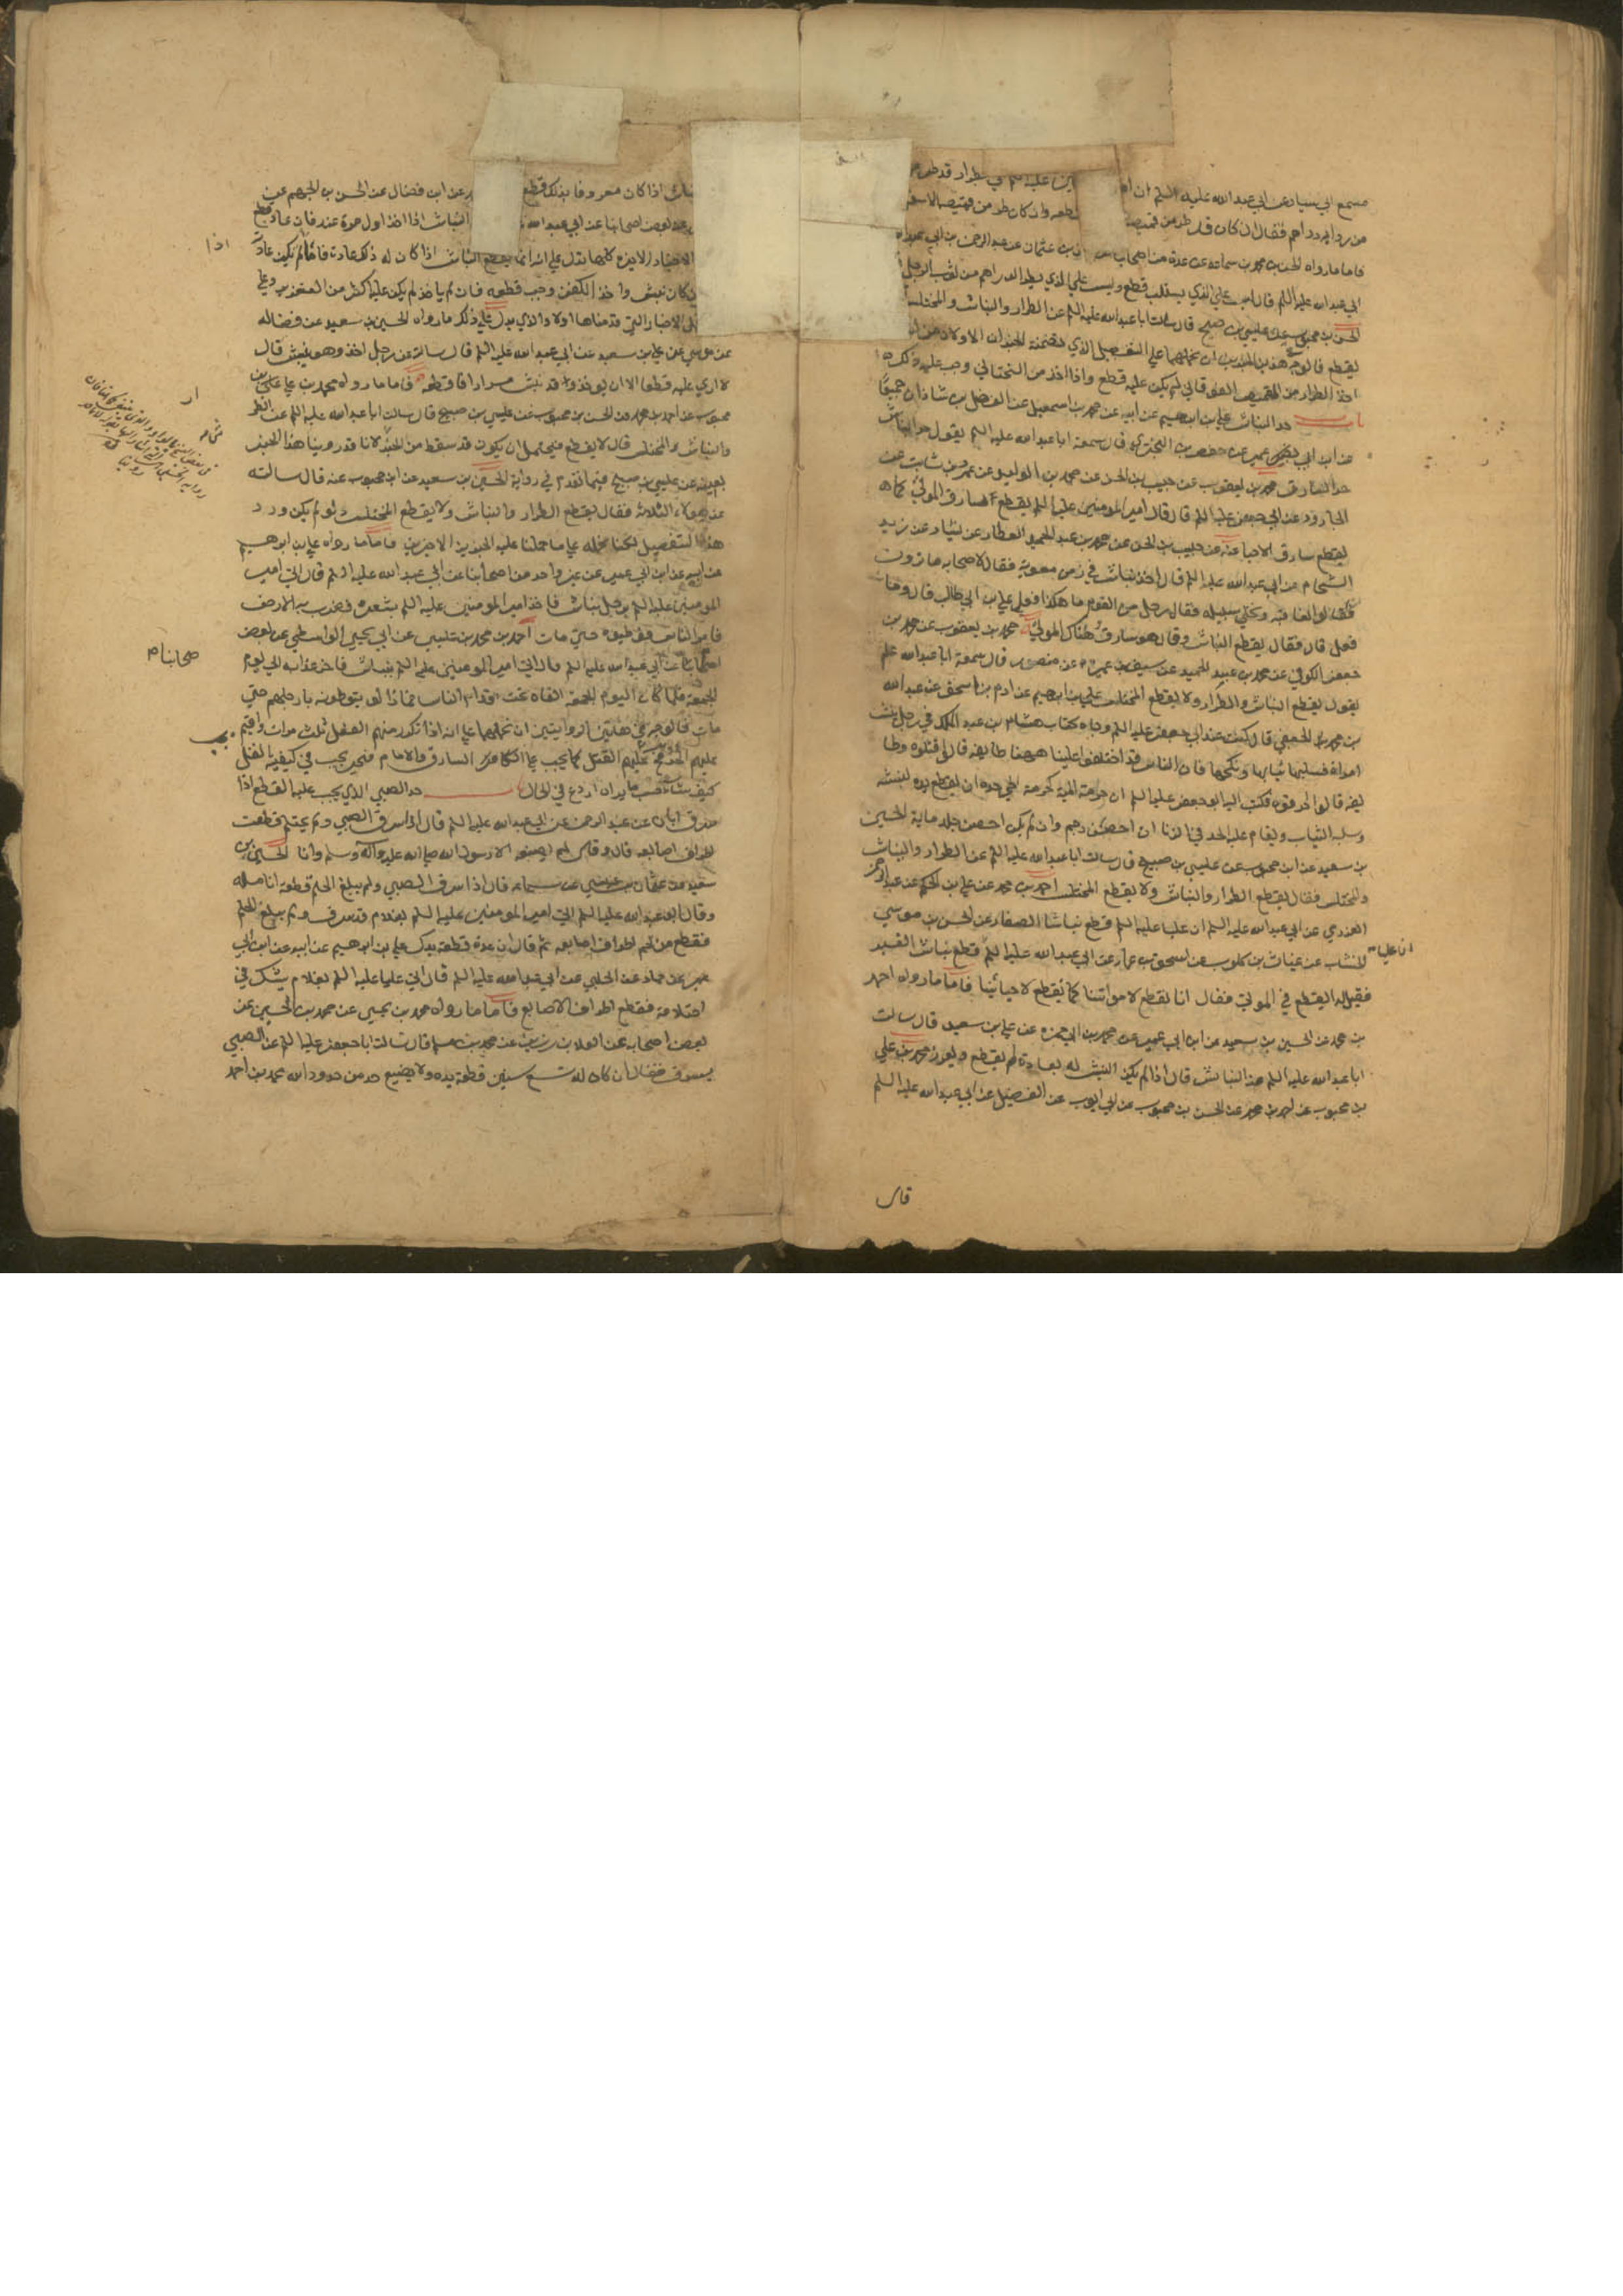 مسمع ابي سيار عن ابي عبد الله عليه السلم ان ام
من رداء دراهم فقال ان كان قد طر من قميصه
فاما ما رواه الحسن بن محمد بن سماعة عن عدة من اصحابه عن ابان بن عثمان عن عبد الرحمن بن ابي عبد الله
ابي عبد الله عليه السلم قال ليس علي الذي يستلب قطع وليس علي الذي يطر الدراهم من ثوب الرجل
الحسن بن محبوب عن عيسي بن صبيح قال سالت ابا عبد الله عليه السلم عن الطرار والنباش والمختلس
يقطع فالوجه في هذين الخبرين ان نحملهما علي التفصيل الذي تضمنه الخبران الاولان
اخذ الطرار من القميص الفوقاني لم يكن عليه قطع واذا اخذ من التحتاني وجب عليه ذلك
باب حد النباش علي بن ابرهيم عن ابيه عن محمد بن اسمعيل عن الفضل بن شاذان جميعا
عن ابن ابي عمير عن حفص بن البختري قال سمعت ابا عبد الله عليه السلم يقول حد النباش
حد السارق محمد بن يعقوب عن حبيب بن الحسن عن محمد بن الوليد عن عمرو بن ثابت عن
الجارود عن ابي جعفر عليه السلم قال قال امير المومنين عليه السلم يقطع سارق الموتي كما
يقطع سارق الاحيا عنه عن حبيب بن الحسن عن محمد بن عبد الحميد العطار عن سيار عن زيد
الشحام عن ابي عبد الله عليه السلم قال اخذ نباش في زمن معوية فقال لاصحابه ما ترون
فقالوا نعاقبه ونخلي سبيله فقال رجل من القوم ما هكذا فعل علي بن ابي طالب قال وما
فعل قال فقال يقطع النباش وقال هو سارق وهتاك الموتي محمد بن يعقوب عن محمد بن
جعفر الكوفي عن محمد بن عبد الحميد عن سيف بن عميرة عن منصور قال سمعت ابا عبد الله علم
يقول يقطع النباش والطرار ولا يقطع المختلس علي بن ابرهيم عن ادم بن اسحق عن عبد الله
بن محمد الجعفي قال كنت عند ابي جعفر عليه السلم وجاه كتاب هشام بن عبد الملك في رجل نبش
امراة فسلبها ثيابها ونكحها فان الناس قد اختلفوا علينا ههنا طايفة قالوا اقتلوه وطا
يفة قالوا احرقوه فكتب اليه ابو جعفر عليه السلم ان حرمة الميت كحرمة الحي حده ان يقطع يده لنبشه
وسلبه الثياب ويقام عليه الحد في الزنا ان احصن رجم وان لم يكن احصن جلد ماية الحسين
بن سعيد عن ابن محبوب عن عيسي بن صبيح قال سالت ابا عبد الله عليه السلم عن الطرار والنباش
والمختلس فقال يقطع الطرار والنباش ولا يقطع المختلس احمد بن محمد عن علي بن الحكم عن عبد الرحمن
العزرمي عن ابي عبد الله عليه السلم ان عليا عليه السلم قطع نباشا الصفار عن الحسن بن موسي
الخشاب عن غياث بن كلوب عن اسحق بن عمار عن ابي عبد الله عليه السلم قطع نباش القبر
ان عليا
فقيل له ايقطع في الموتي فقال انا لنقطع لامواتنا كما نقطع لاحيائنا فاما ما رواه احمد
بن محمد عن الحسين بن سعيد عن ابن ابي عمير عن محمد بن ابي حمزة عن علي بن سعيد قال سالت
ابا عبد الله عليه السلم عن النباش قال اذا لم يكن النبش له بعادة لم يقطع ويعزر محمد بن علي
بن محبوب عن احمد بن محمد عن الحسن بن محبوب عن ابي ايوب عن الفضيل عن ابي عبد الله عليه السلم
قال
النباش اذا كان معروفا بذلك قطع عن ابن فضال عن الحسن بن الجهم عن
بعض اصحابنا عن ابي عبد الله النباش اذا اخذ اول مرة عزر فان عاد قطع
الاخيرة كلها تدل علي انه انما يقطع النباش اذا كان له ذلك عادة فاما لم يكن عادة
اذا
كان نبش واخذ الكفن وجب قطعه فان لم ياخذ لم يكن عليه اكثر من التعزير وعلي
الاخبار التي قدمناها اولا والذي يدل علي ذلك ما رواه الحسين بن سعيد عن فضالة
عن موسي عن علي بن سعيد عن ابي عبد الله عليه السلم قال سالته عن رجل اخذ وهو ينبش قال
لا اري عليه قطعا الا ان يوخذ وقد نبش مرارا فاقطعه فاما ما رواه محمد بن علي بن
محبوب عن احمد بن محمد عن الحسن بن محبوب عن عيسي بن صبيح قال سالت ابا عبد الله عليه السلم عن الطرار
والنباش والمختلس قال لا يقطع فيحتمل ان يكون قد سقط من الخبر لانا قد روينا هذا الخبر
بعينه عن عيسي بن صبيح فيما تقدم في رواية الحسين بن سعيد عن ابن محبوب عنه قال سالته
عن هولاء الثلاثة فقال يقطع الطرار والنباش ولا يقطع المختلس ولو لم يكن ورد
هذا التفصيل لكنا نحمله علي ما حملنا عليه الخبرين الاخيرين فاما ما رواه علي بن ابرهيم
عن ابيه عن ابن ابي عمير عن غير واحد من اصحابنا عن ابي عبد الله عليه السلم قال اتي امير
المومنين عليه السلم برجل نباش فاخذ امير المومنين عليه السلم بشعره فضرب به الارض
فامر الناس فوطيوه حتي مات احمد بن محمد بن عيسي عن ابي يحيي الواسطي عن بعض
اصحابنا عن ابي عبد الله عليه السلم قال اتي امير المومنين عليه السلم بنباش فاخر عذابه الي يوم
صحابنا م
الجمعة فلما كان اليوم الجمعة القاه تحت اقدام الناس فما زالوا يتوطونه بارجلهم حتي
مات فالوجه في هاتين الروايتين ان نحملهما علي انه اذا تكرر منهم الفعل ثلث مرات واقيم
عليهم الحد فحينئذ يجب عليهم القتل كما يجب علي السارق والامام مخير يجب في كيفية القتل
كيف شاء بحسب ما يراه اردع في الحال حد الصبي الذي يجب عليه القطع اذا
سرق ابان عن عبد الرحمن عن ابي عبد الله عليه السلم قال اذا سرق الصبي ولم يحتلم قطعت
اطراف اصابعه قال وقال لم يصنعه الا رسول الله صلي الله عليه وآله وسلم وانا الحسين بن
سعيد عن عثمان بن عيسي عن سماعة قال اذا سرق الصبي ولم يبلغ الحلم قطعت انامله
وقال ابو عبد الله عليه السلم اتي امير المومنين عليه السلم بغلام قد سرق ولم يبلغ الحلم
فقطع من لحم اطراف اصابعه ثم قال ان عدت قطعت يدك علي بن ابرهيم عن ابيه عن ابن ابي
عمير عن حماد عن الحلبي عن ابي عبد الله عليه السلم قال اتي علي عليه السلم بغلام يشك في
احتلامه فقطع اطراف الاصابع فاما ما رواه محمد بن يحيي عن محمد بن الحسين عن
بعض اصحابه عن العلا بن رزين عن محمد بن مسلم قال سالت ابا جعفر عليه السلم عن الصبي
يسرق فقال ان كان له تسع سنين قطعت يده ولا يضيع حد من حدود الله محمد بن احمد